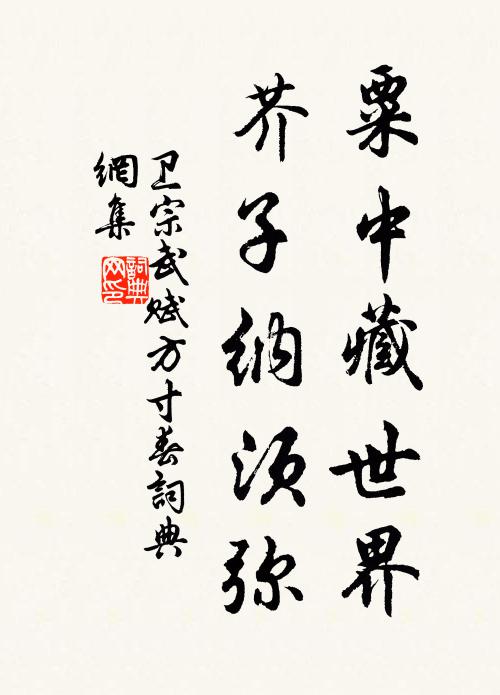 粟中藏世界
芥子纳须弥
卫宗武赋方寸春詞典
網集
詞典
网印